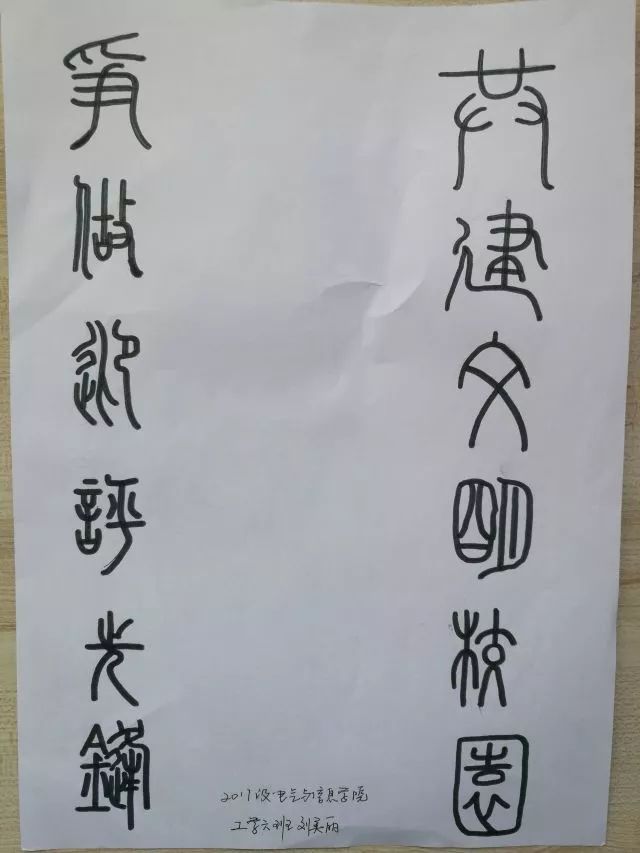 共建文明校园
争做迎评先锋
2017级电气与信息学院
工学六班刘美丽